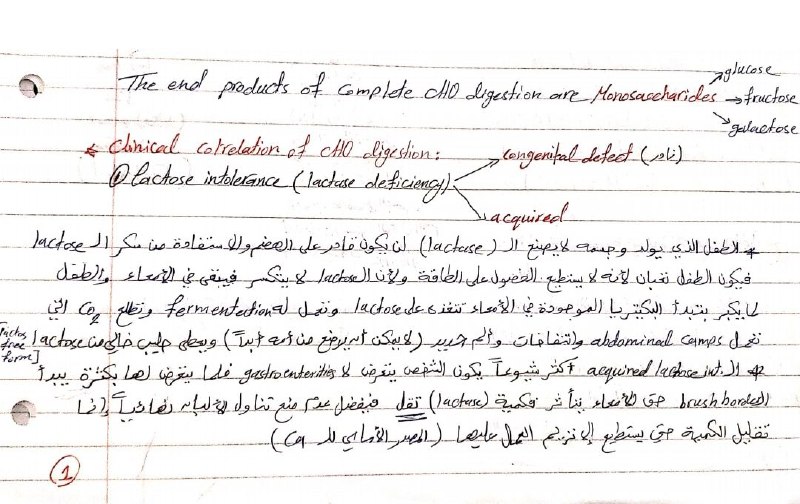 The end products of complete CHO digestion are Monosaccharides → glucose → fructose → galactose
* Clinical correlation of CHO digestion:
① lactose intolerance (lactase deficiency) congenital defect (نادر)
acquired
* الطفل الذي يولد وجسمه لا يصنع الـ (lactase) لن يكون قادر على الهضم والاستفادة من سكر الـ lactose
فيكون الطفل تعبان لأنه لا يستطيع الحصول على الطاقة ولأن الـ lactose لا يتكسر فيبقى في الأمعاء والطفل
لما يكبر بتبدأ البكتيريا الموجودة في الأمعاء تتغذى على lactose وتعمل له fermentation وتطلع CO₂ التي
تعمل abdominal camps وانتفاخات وألم شديد (لا يمكن أنه يرضع من أمه أبداً) ويعطى حليب خالي من lactose [lactose free form]
* الـ acquired lactose int. أكثر شيوعاً يكون الشخص يتعرض لـ gastroenteritis فلما يتعرض لها بكثرة يبدأ
الـ brush border حق الأمعاء يتأثر فكمية (lactase) تقل فيفضل عدم منع تناول الألبان نهائياً إنما
تقليل الكمية حتى يستطيع الإنزيم العمل عليها (المصدر الأساسي للـ Ca)
①